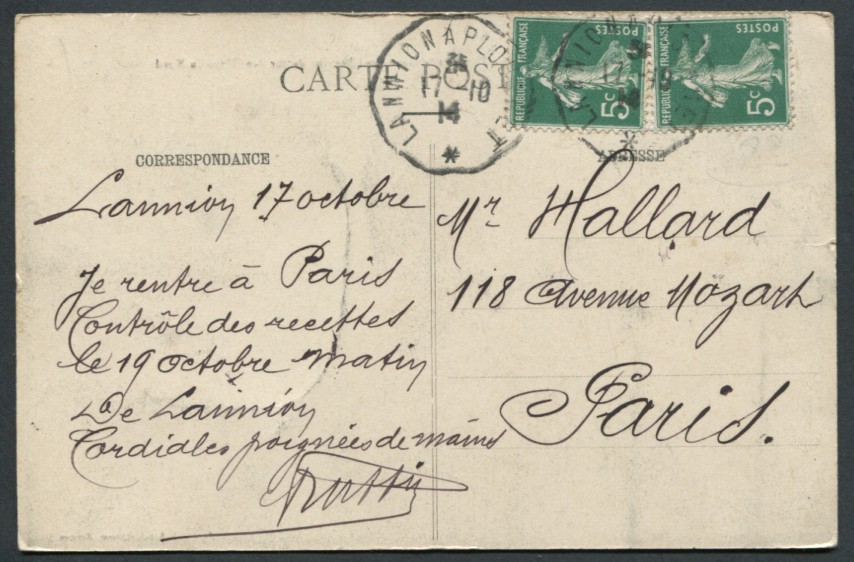 CARTE POST
LANNION A PLO
3E
17 - 10
14
REPUBLIQUE FRANÇAISE
POSTES
5c
REPUBLIQUE FRANÇAISE
POSTES
5c
CORRESPONDANCE
ADRESSE
Lannion 17 octobre
Je rentre à Paris
Contrôle des recettes
le 19 octobre matin
De Lannion
Cordiales poignées de mains
Mr Hallard
118 Avenue Mozart
Paris.